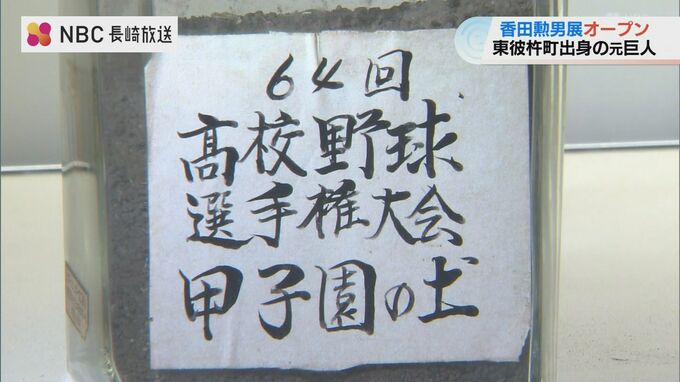 NBC 長崎放送
香田勲男展オープン
東彼杵町出身の元巨人
64回
髙校野球
選手権大会
甲子園の土